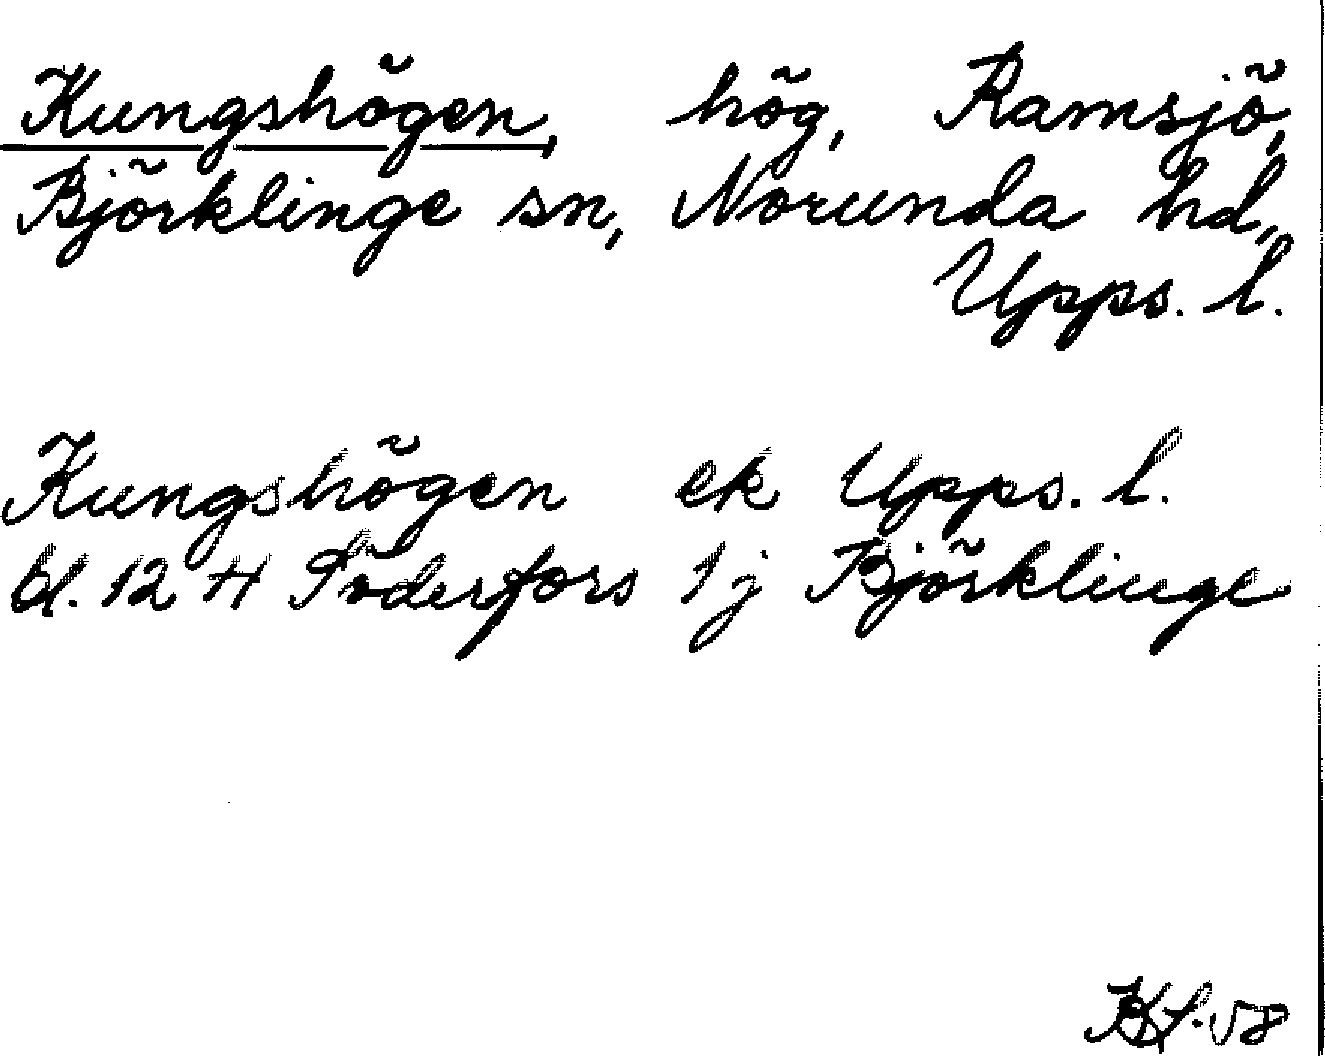 Kungshögen, hög, Ramsjö,
Björklinge sn, Norunda hd,
Upps. l.
Kungshögen ek Upps. l.
bl. 12 H Söderfors 1j Björklinge